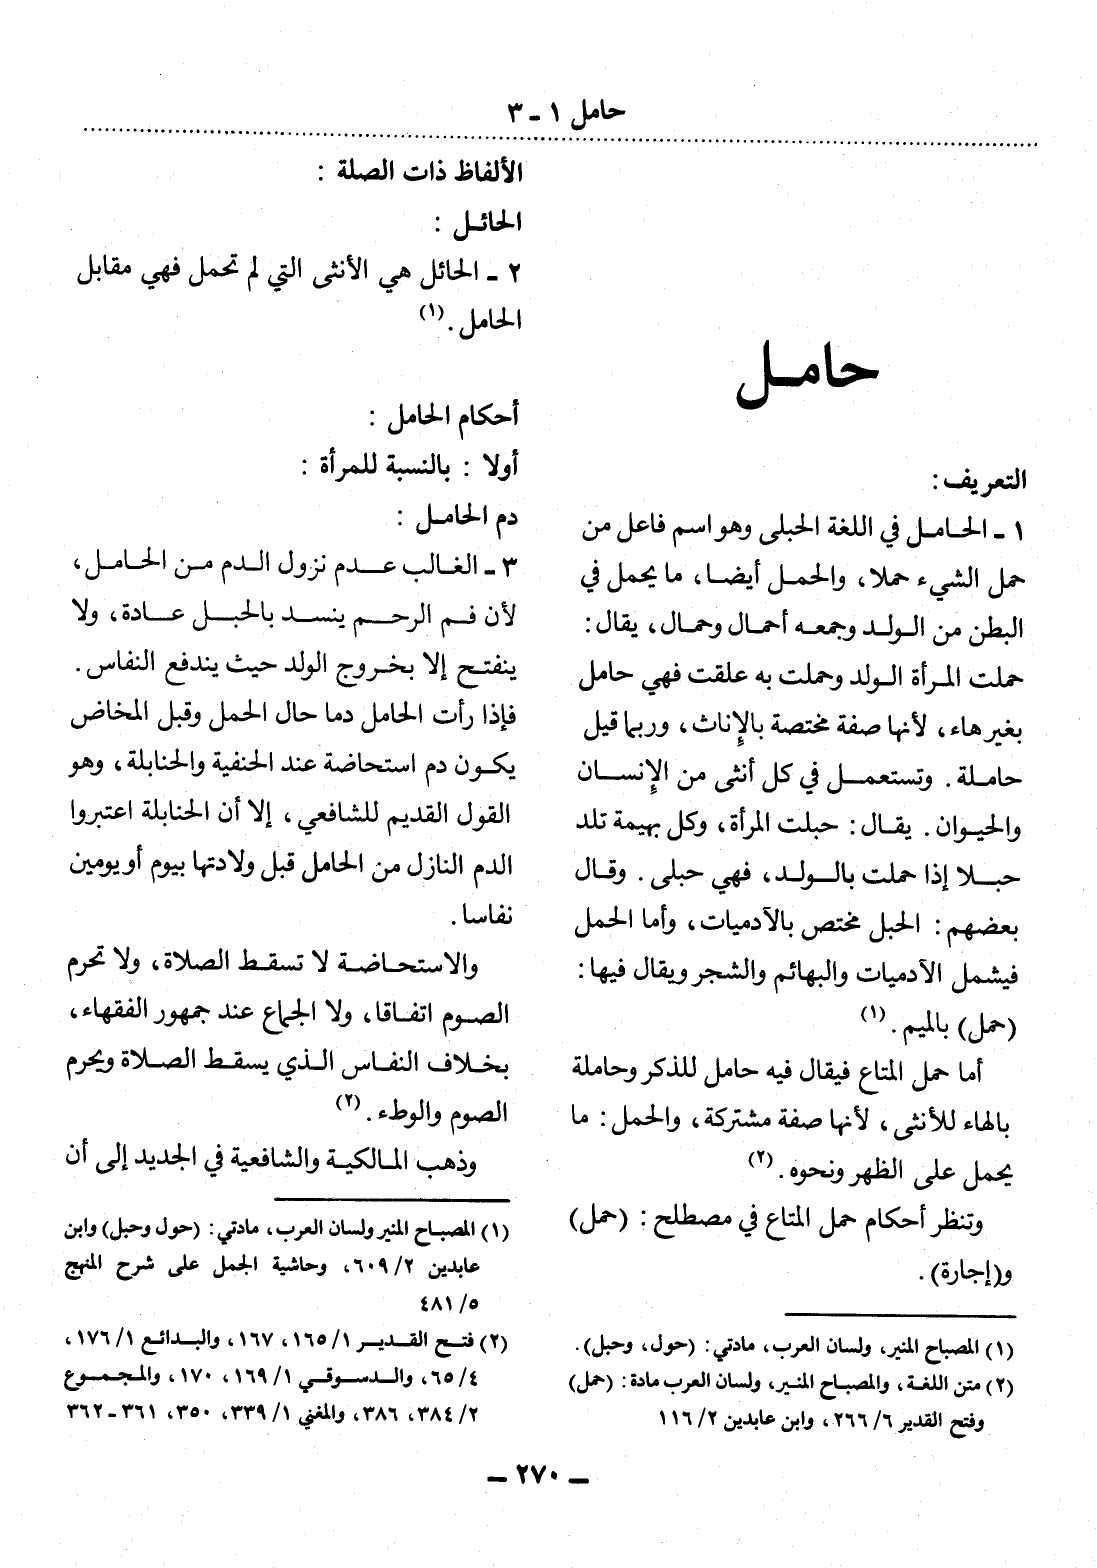 حامل ١ - ٣
حامـل
التعريف:
١ - الحامـل في اللغة الحبلى وهو اسم فاعل من
حمل الشيء حملا، والحمـل أيضـا، ما يحمل في
البطن من الـولـد وجمعـه أحمـال وحمـال، يقال:
حملت المـرأة الـولد وحملت به علقت فهي حامل
بغير هاء، لأنها صفة مختصة بالإناث، وربما قيل
حاملـة. وتستعمـل في كل أنثى من الإنسـان
والحيـوان. يقـال: حبلت المرأة، وكل بهيمة تلد
حبـلا إذا حملت بالـولـد، فهي حبلى. وقـال
بعضهم: الحبل مختص بالآدميات، وأما الحمل
فيشمل الآدميات والبهائم والشجر ويقال فيها:
(حمل) بالميم. (١)
أما حمل المتاع فيقال فيه حامل للذكر وحاملة
بالهاء للأنثى، لأنها صفة مشتركة، والحمل: ما
يحمل على الظهر ونحوه. (٢)
وتنظر أحكام حمل المتاع في مصطلح: (حمل)
و(إجارة).
(١) المصباح المنير، ولسان العرب، مادتي: (حول، وحبل).
(٢) متن اللغـة، والمصباح المنـير، ولسان العرب مادة: (حمل)
وفتح القدير ٦/ ٢٦٦، وابن عابدين ٢/ ١١٦
الألفاظ ذات الصلة :
الحائـل :
٢ - الحائل هي الأنثى التي لم تحمل فهي مقابل
الحامل. (١)
أحكام الحامل :
أولا : بالنسبة للمرأة :
دم الحامـل :
٣ - الغـالب عـدم نزول الـدم مـن الحـامـل،
لأن فـم الرحـم ينسـد بالحبـل عـادة، ولا
ينفتـح إلا بخـروج الولد حيث يندفع النفاس.
فإذا رأت الحامل دما حال الحمل وقبل المخاض
يكـون دم استحاضة عند الحنفية والحنابلة، وهو
القول القديم للشافعي، إلا أن الحنابلة اعتبروا
الدم النازل من الحامل قبل ولادتها بيوم أو يومين
نفاسا.
والاستحـاضـة لا تسقـط الصلاة، ولا تحرم
الصـوم اتفـاقا، ولا الجماع عند جمهور الفقهاء،
بخـلاف النفاس الـذي يسقـط الصـلاة ويحرم
الصوم والوطء. (٢)
وذهب المـالكيـة والشافعية في الجديد إلى أن
(١) المصبـاح المنير ولسان العرب، مادتي: (حول وحبل) وابن
عابدين ٢/ ٦٠٩، وحاشية الجمل على شرح المنهج
٥/ ٤٨١
(٢) فتـح القـديـر ١/ ١٦٥، ١٦٧، والبـدائـع ١/ ١٧٦،
٤/ ٦٥، والـدسـوقـي ١/ ١٦٩، ١٧٠، والمجمـوع
٢/ ٣٨٤، ٣٨٦، والمغني ١/ ٣٣٩، ٣٥٠، ٣٦١ - ٣٦٢
- ٢٧٠ -